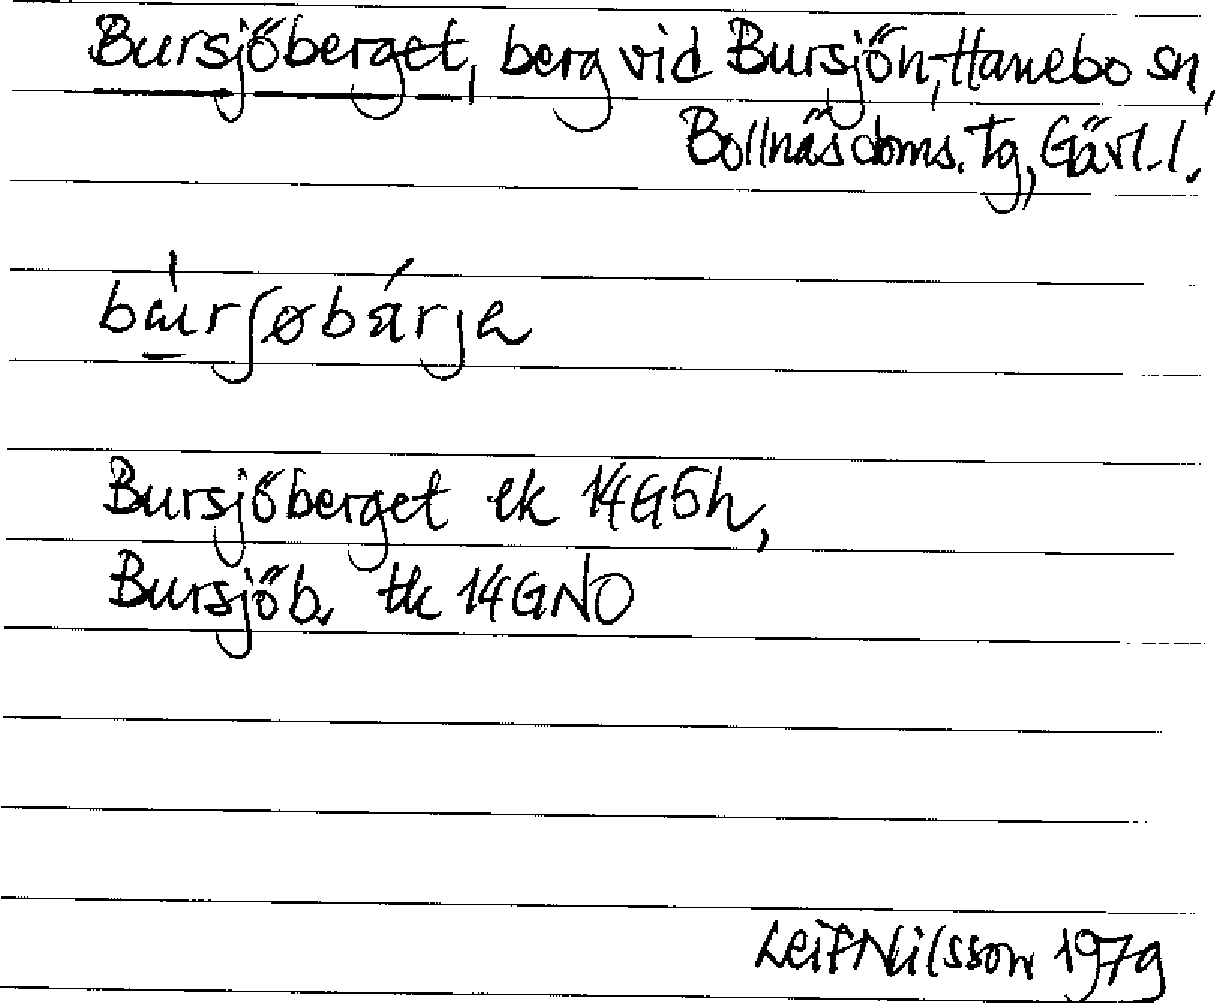 Bursjöberget, berg vid Bursjön, Hanebo sn,
Bollnäs doms. tg, Gävl. l.
Bursjöberget ek 14G5h,
Bursjöb. tk 14GNO
Leif Nilsson 1979